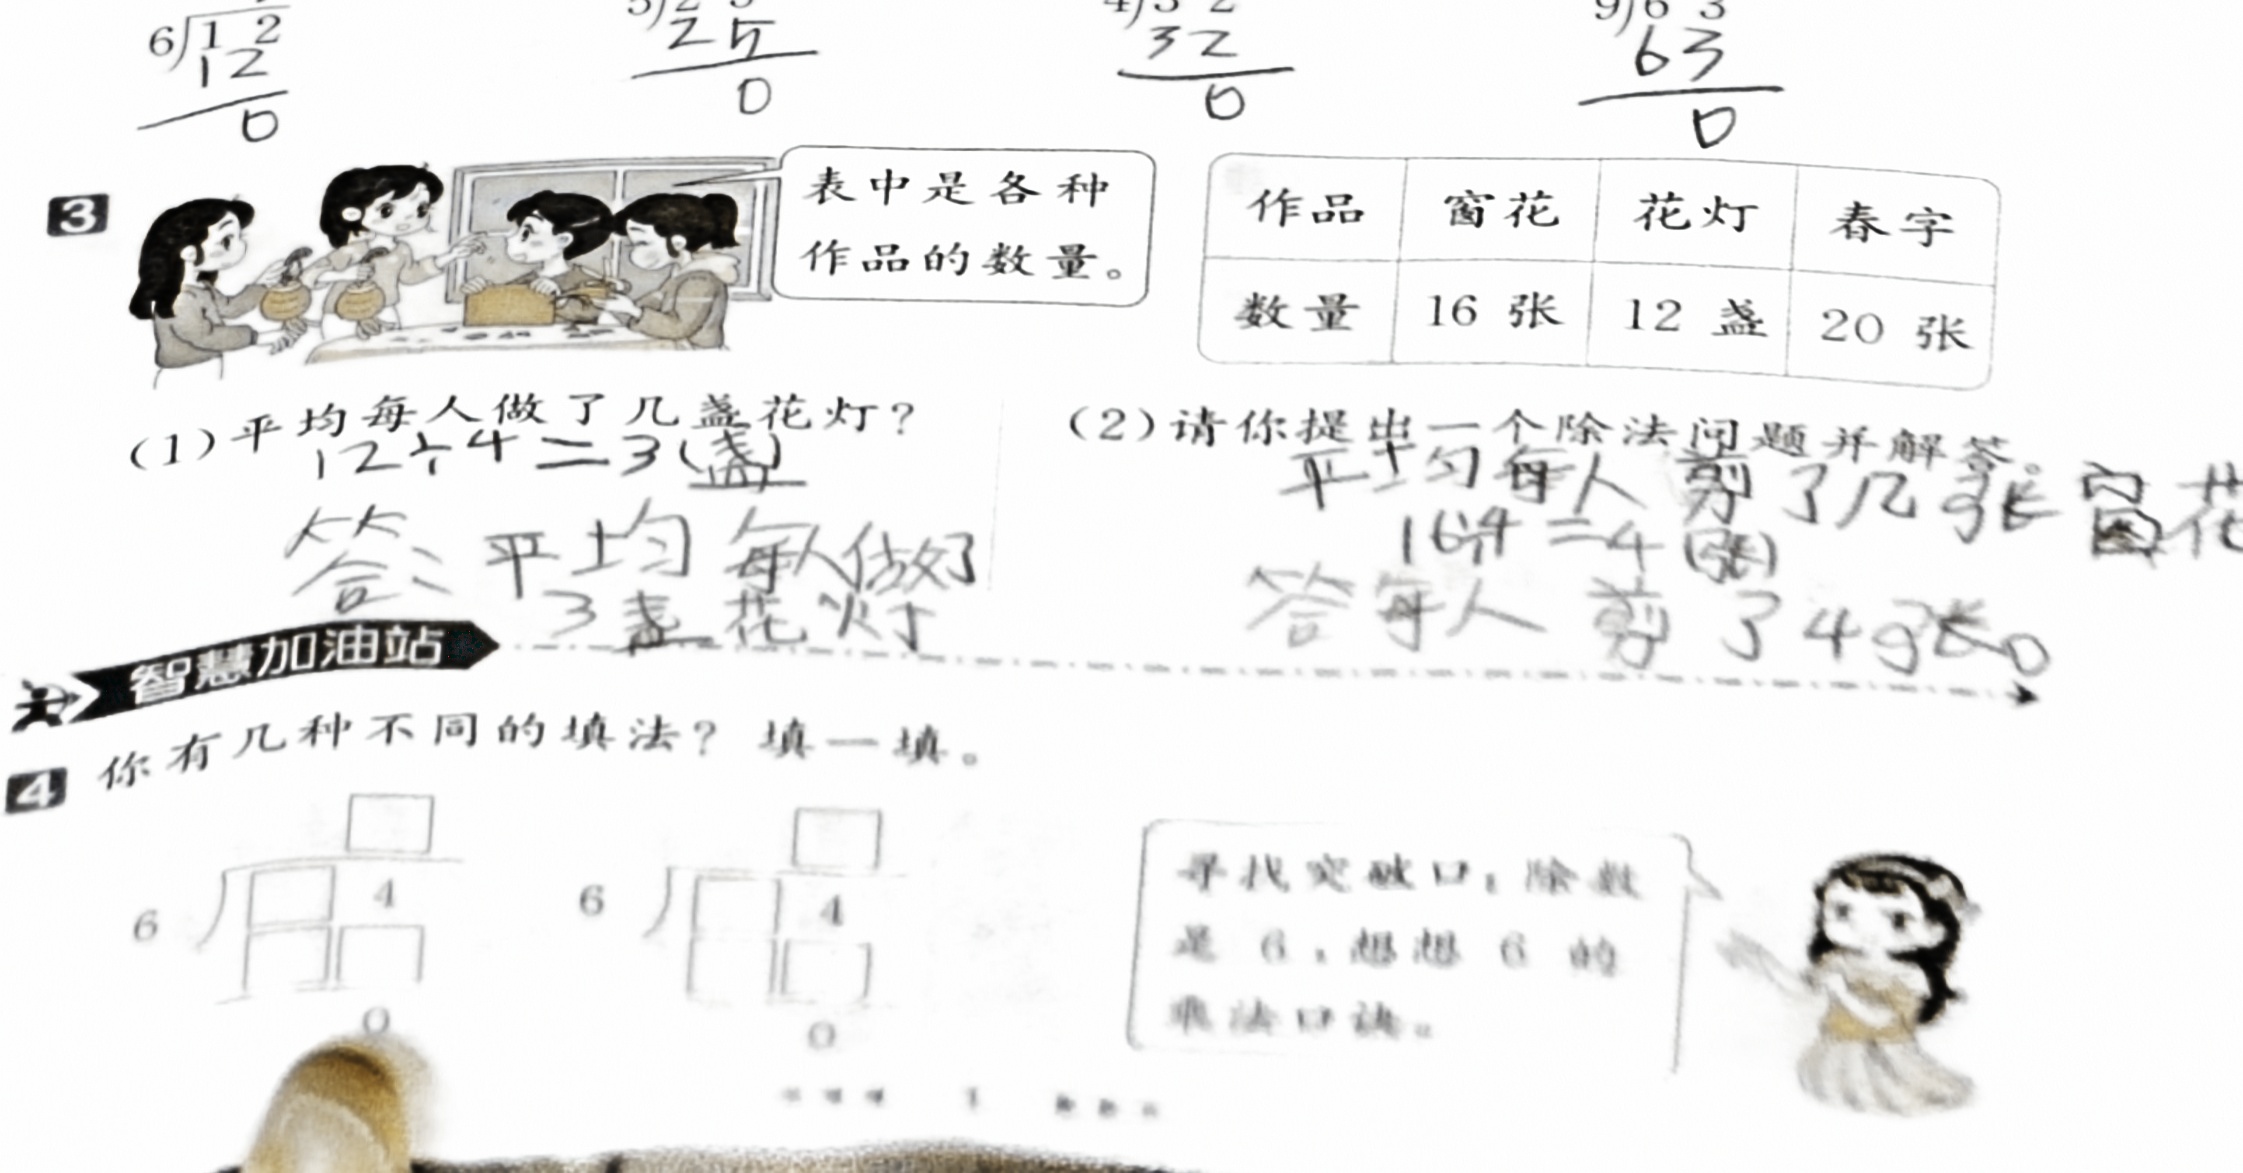 6 1 2
12
0
2 5
0
3 2
0
9 6 3
63
0
3
表中是各种
作品的数量。
作品 窗花 花灯 春字
数量 16 张 12 盏 20 张
(1)平均每人做了几盏花灯?
12÷4=3(盏)
答:平均每人做好了
3盏花灯
(2)请你提出一个除法问题并解答。
平均每人剪了几张窗花
16÷4=4(张)
答每人剪了4张。
智慧加油站
4 你有几种不同的填法?填一填。
6 4
0
6 4
0
寻找突破口:除数
是 6,想想 6 的
乘法口诀。